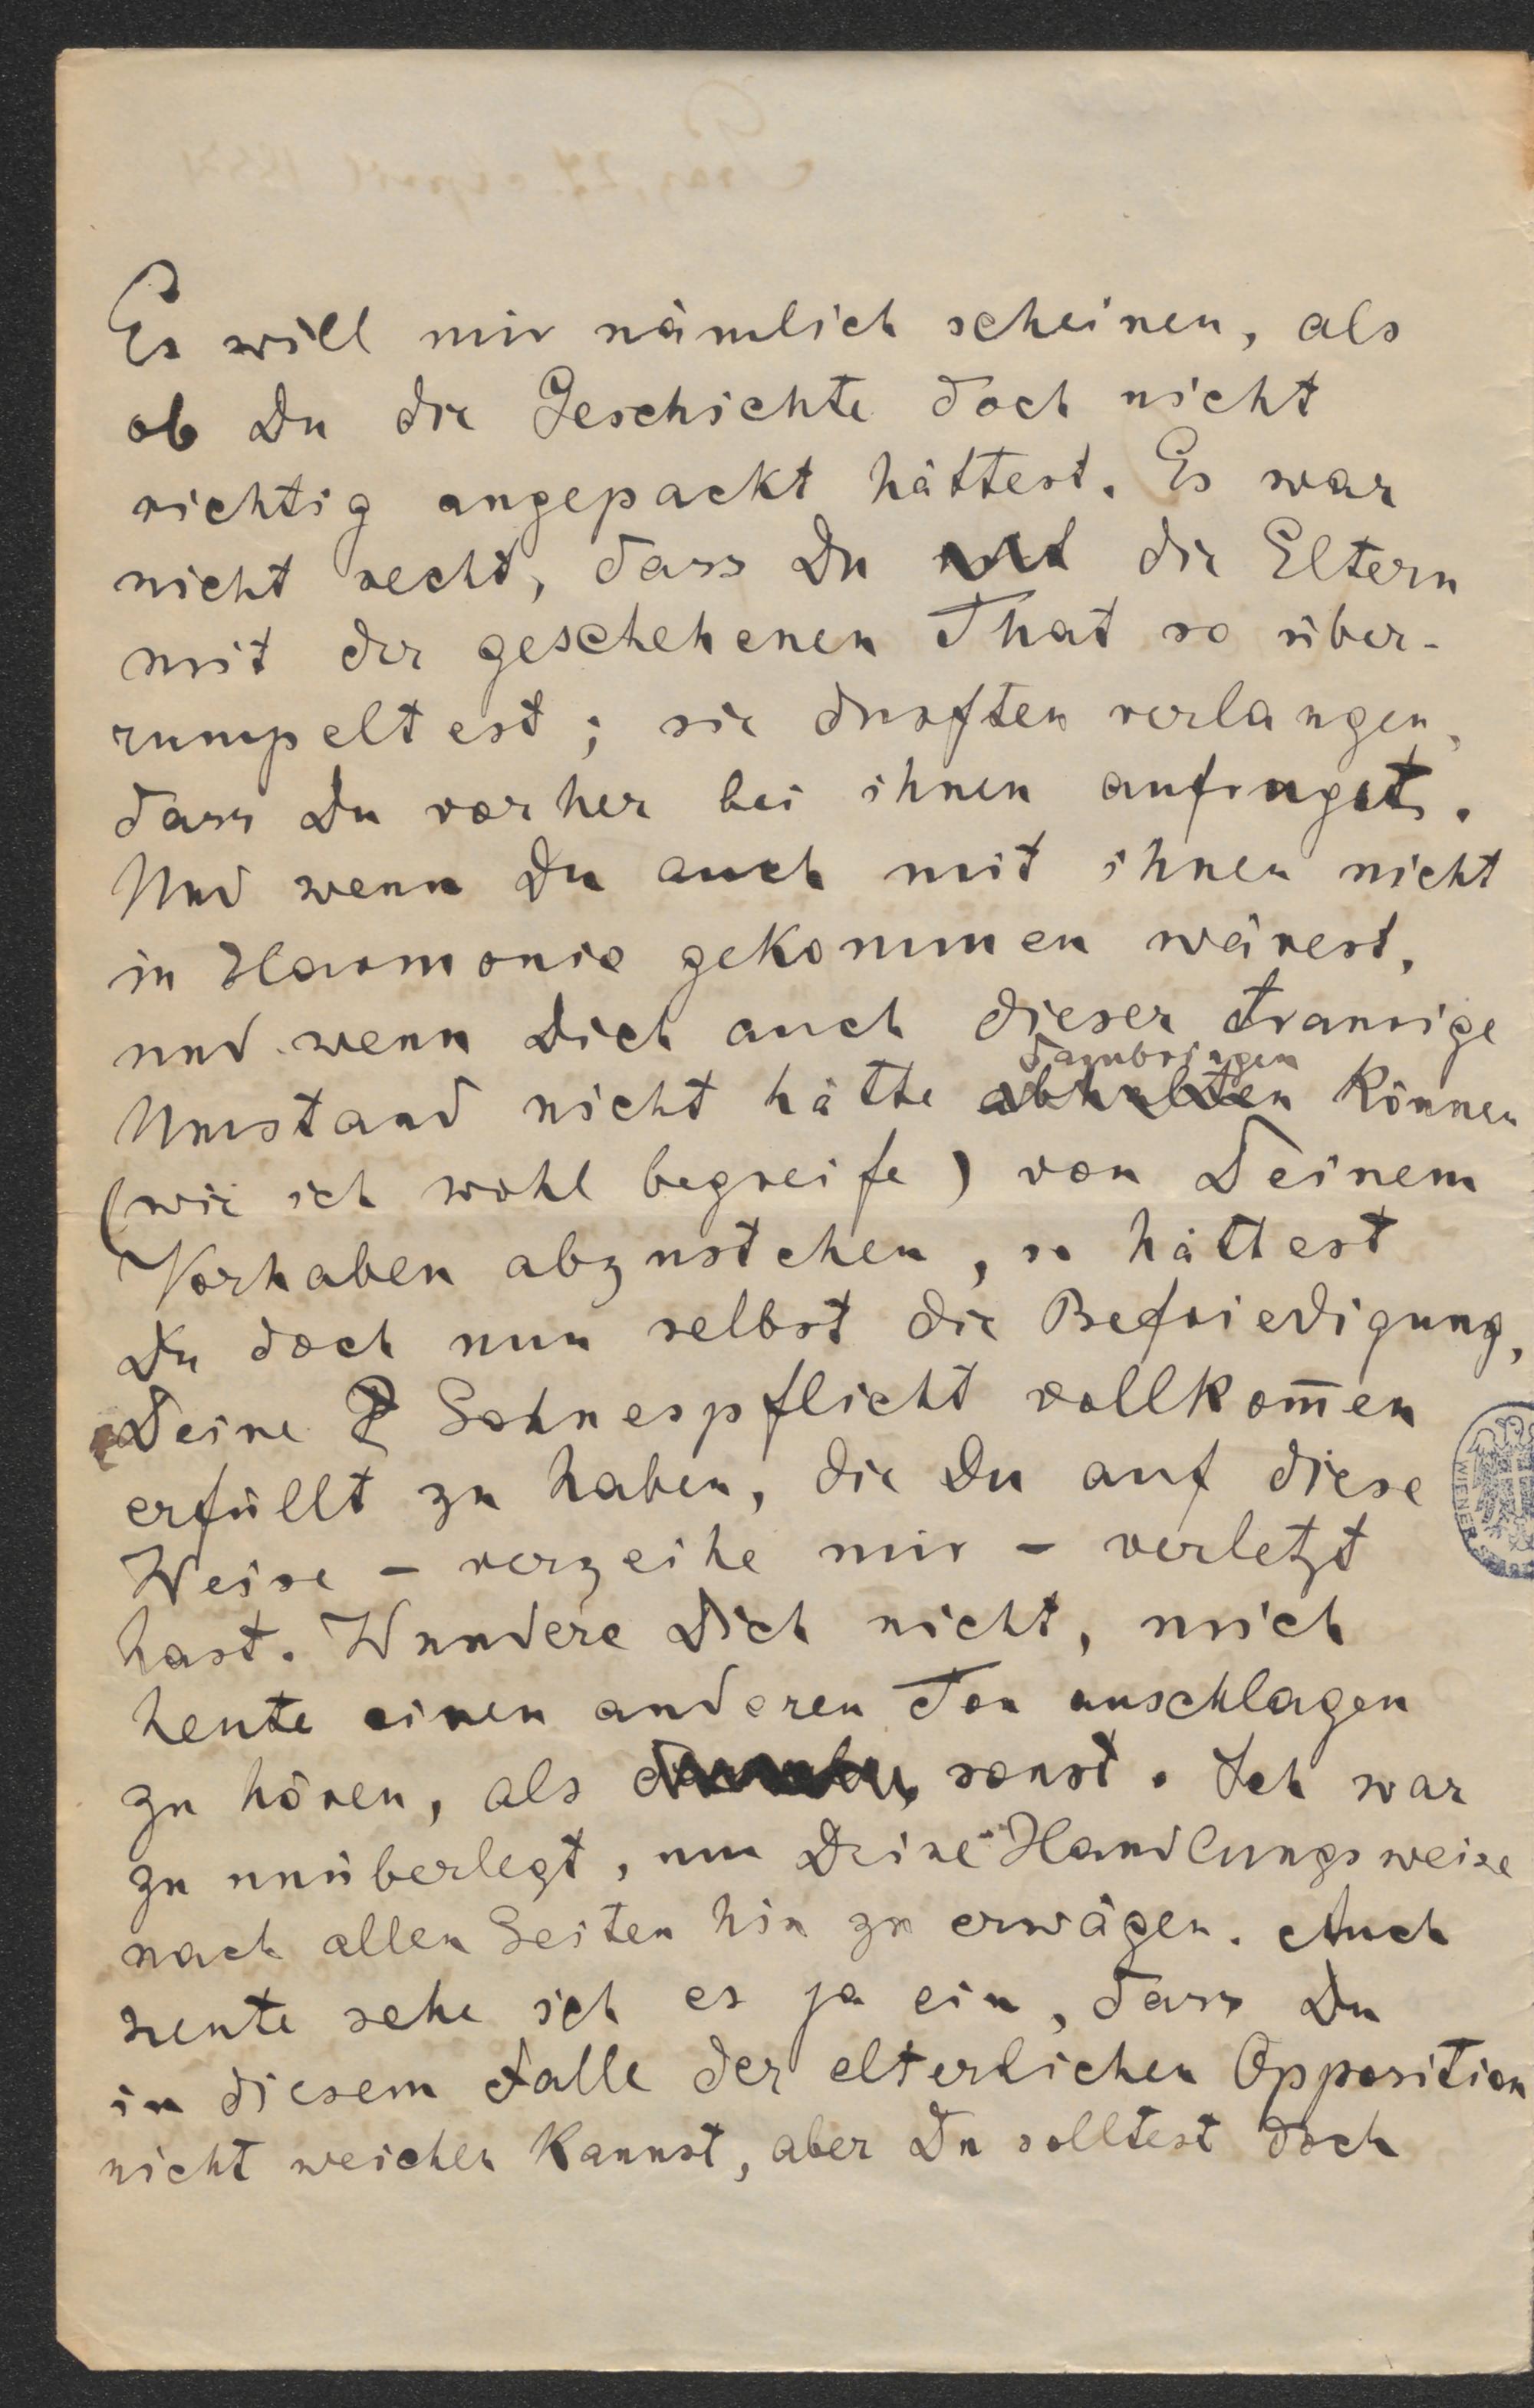 Es will mir nämlich scheinen, als
ob Du die Geschichte doch nicht
richtig angepackt hättest. Es war
nicht recht, dass Du die Eltern
mit der geschehenen That so über-
rumpeltest; sie durften verlangen,
dass Du vorher bei ihnen anfragst.
Und wenn Du auch mit ihnen nicht
in Harmonie gekommen wärest,
und wenn Dich auch dieser traurige
dazubringen
Umstand nicht hätte abhalten können
(wie ich wohl begreife) von Deinem
Vorhaben abzustehen, so hättest
Du doch nun selbst die Befriedigung,
Deine P Sohnespflicht vollkom̅en
erfüllt zu haben, die Du auf diese
Weise – verzeihe mir – verletzt
hast. Wundere Dich nicht, mich
heute einen anderen Ton anschlagen
zu hören, als sonst. Ich war
zu unüberlegt, um Deine Handlungsweise
nach allen Seiten hin zu erwägen. Auch
heute sehe ich es ja ein, dass Du
in diesem Falle der elterlichen Opposition
nicht weichen kannst, aber Du solltest doch
WIENER